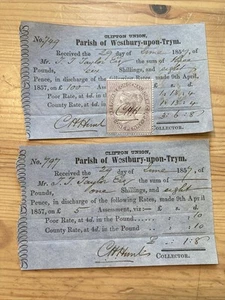 CLIFTON UNION,
No. 799 Parish of Westbury-upon-Trym.
Received the 29 day of June 1857, of
Mr. J. J. Taylor Esq the sum of Three
Pounds, Ten Shillings, and eight
Pence, in discharge of the following Rates made 9th April,
1857, on £ 100 Assessment, viz:
Poor Rate, at 4d. in the
County Rate, at 4d. in
COLLECTOR.
CLIFTON UNION,
No. 797 Parish of Westbury-upon-Trym.
Received the 29 day of June 1857, of
Mr. J. J. Taylor Esq the sum of
Pounds, one Shillings, and eight
Pence, in discharge of the following Rates made 9th April
1857, on £ 5 Assessment, viz: £ s. d.
Poor Rate, at 4d. in the Pound : : 10
County Rate, at 4d. in the Pound : : 10
£ : 1 : 8
COLLECTOR.